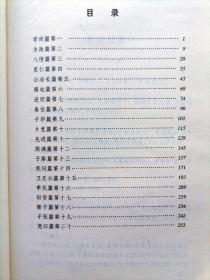 目录
学而篇第一 1
为政篇第二 9
八佾篇第三 20
里仁篇第四
公冶长篇第五
雍也篇第六
述而篇第七 74
泰伯篇第八
子罕篇第九 101
乡党篇第十 115
先进篇第十一 129
颜渊篇第十二
子路篇第十三 157
宪问篇第十四 171
卫灵公篇第十五 193
季氏篇第十六 209
阳货篇第十七 219
微子篇第十八 234
子张篇第十九 242
尧曰篇第二十 253